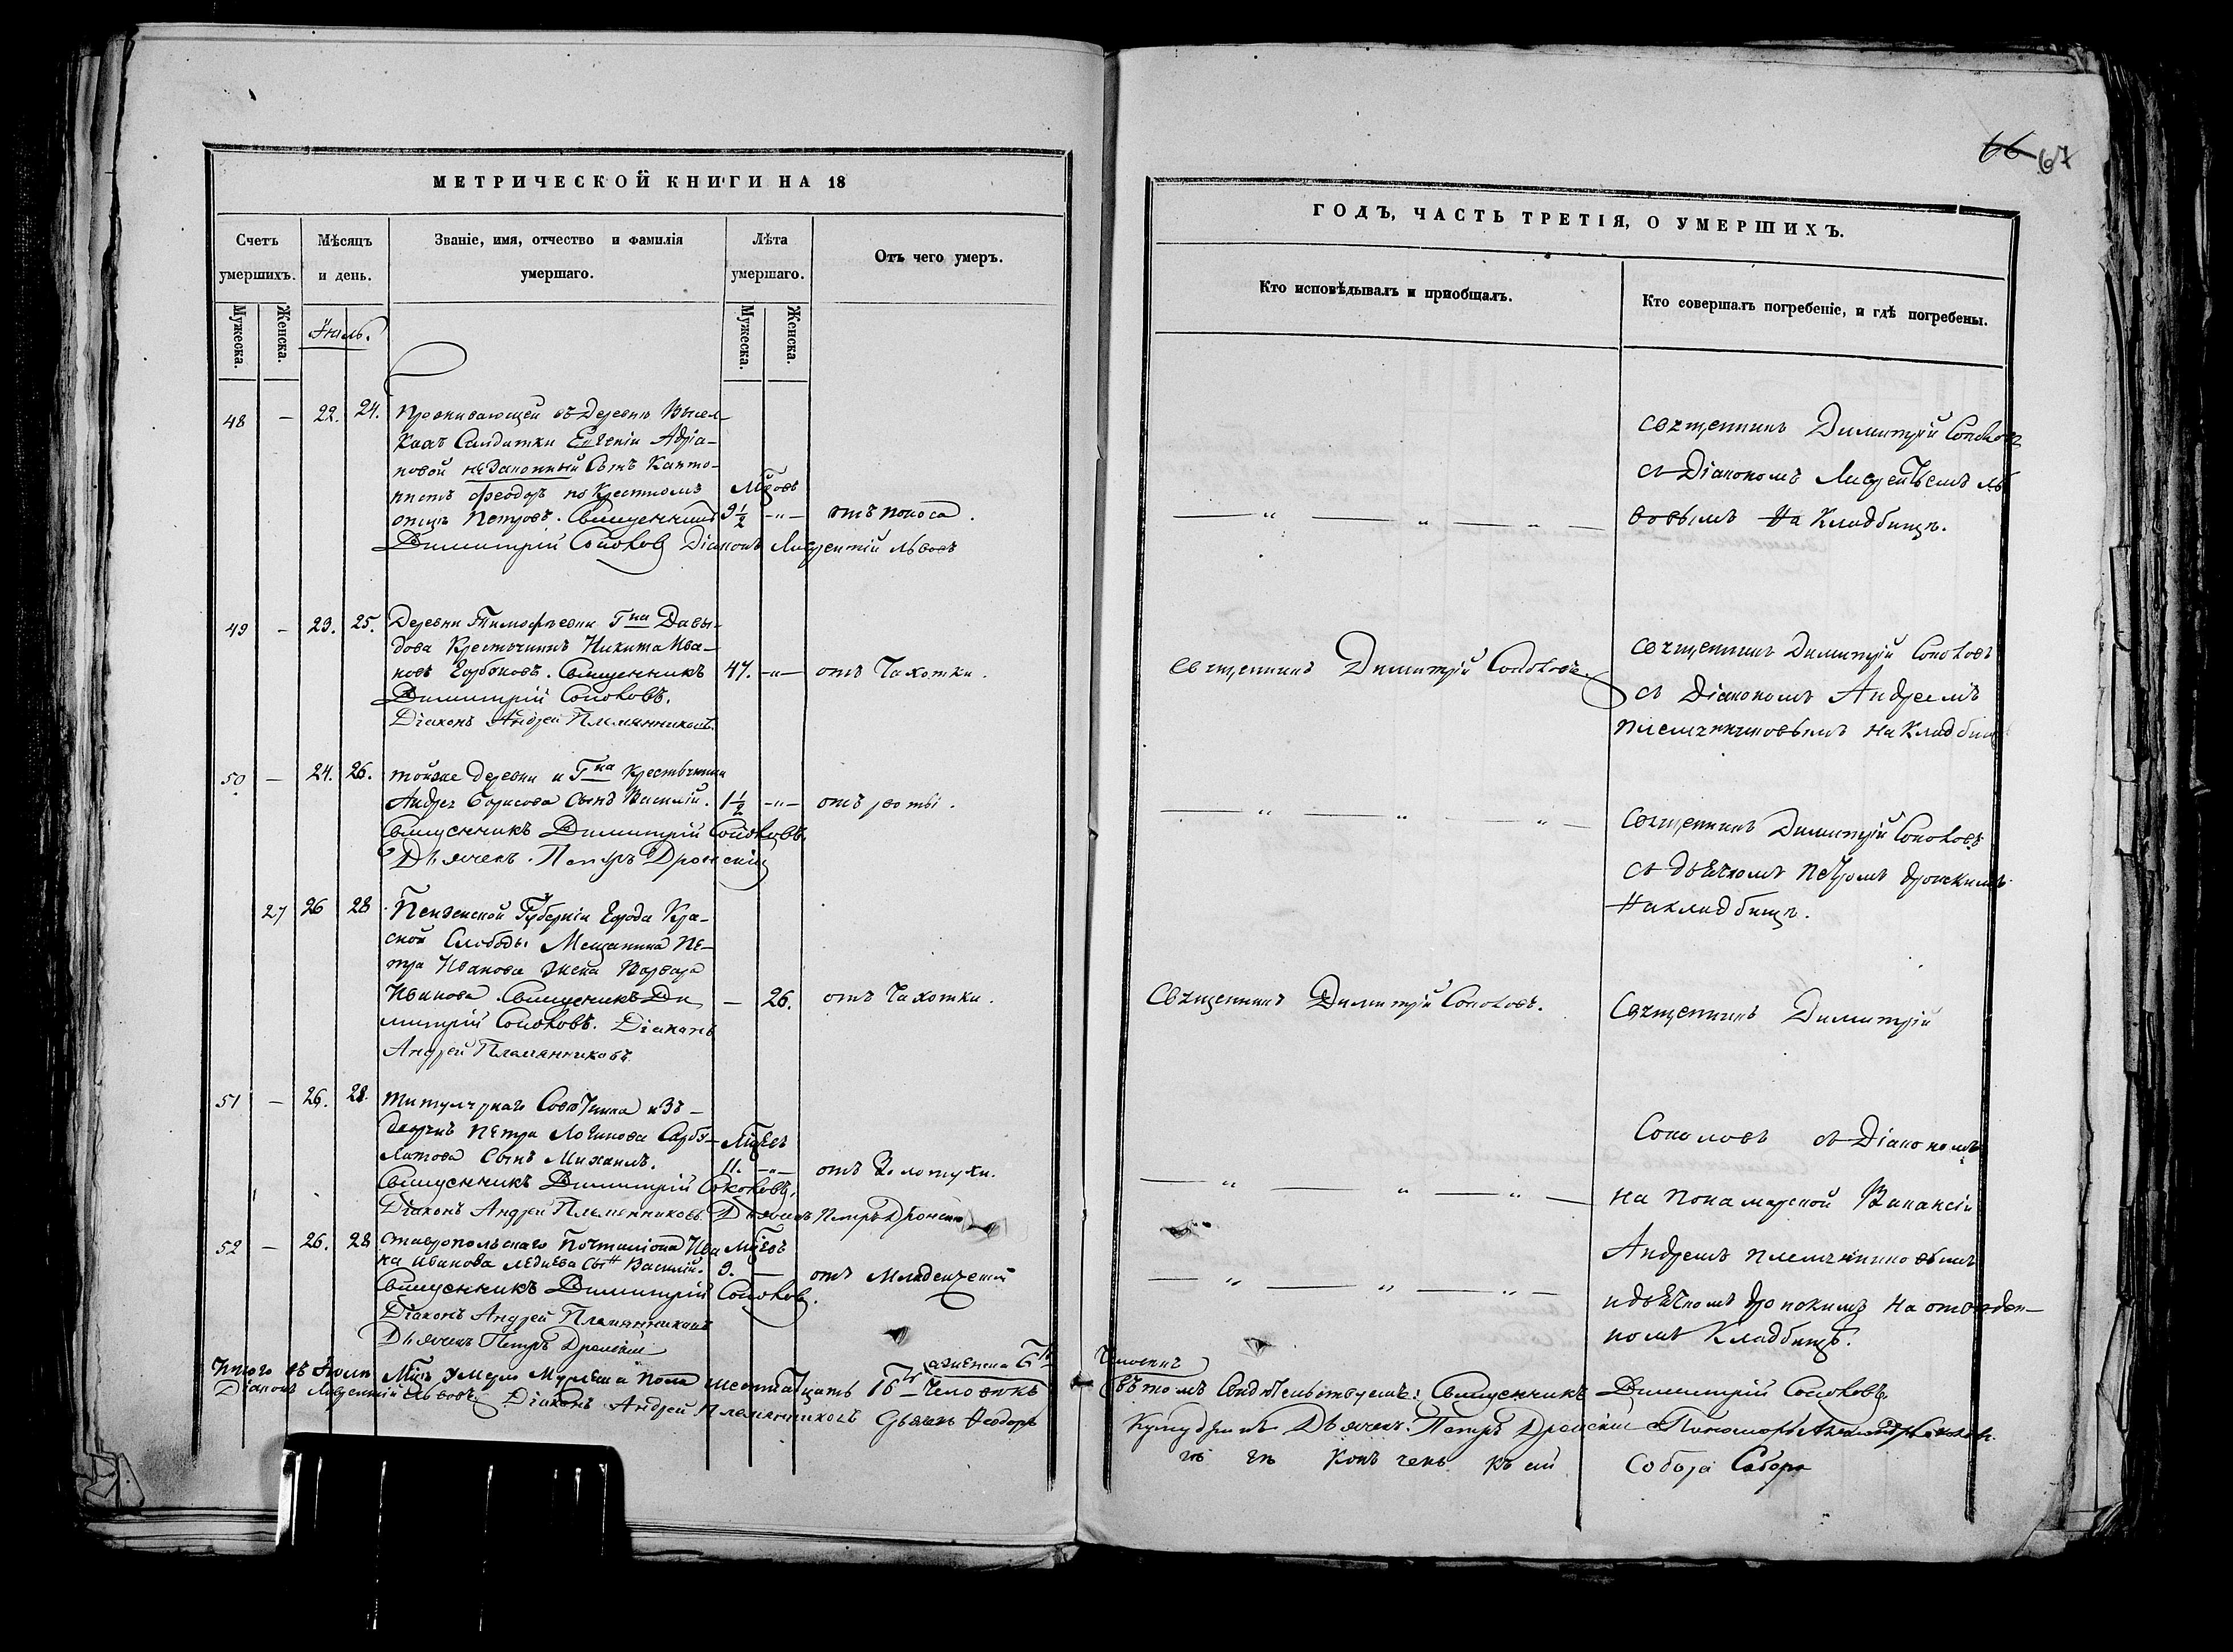 МЕТРИЧЕСКОЙ КНИГИ НА 18
Счетъ умершихъ.
Мѣсяцъ и день.
Званіе, имя, отчество и фамилія умершаго.
Лѣта умершаго.
Отъ чего умеръ.
Мужеска.
Женска.
Мужеска.
Женска.
Іюль.
48 – 22. 24. Проживающей въ деревнѣ Высел–
кахъ Солдатки Евгеніи Адріа–
новой незаконный Сынъ Канто–
нистъ Феодоръ по Крестномъ Мцовъ
отцѣ Петровъ. Священникъ 9½ –„– отъ поноса.
Димитрій Соколовъ Діаконъ Лаврентій Львовъ
49 – 23. 25. Деревни Тимофеевки Гна Давы–
дова Крестьянинъ Никита Ива–
новъ Горбуновъ. Священникъ 47. –„– отъ Чахотки.
Димитрій Соколовъ.
Діаконъ Андрей Племянниковъ.
50 – 24. 26. тойже деревни и Гна Крестьянина
Андрея Борисова Сынъ Василій. 1½ –„– отъ рвоты.
Священникъ Димитрій Соколовъ.
Дьячекъ Петръ Дронскій
27 26 28 Пензенской Губерніи Города Кра–
сной Слободы Мещанина Пе–
тра Иванова жена Варвара
Иванова. Священникъ Ди – 26. отъ Чахотки.
митрій Соколовъ. Діаконъ
Андрей Племянниковъ
51 – 26. 28. Титулярнаго Совѣтника
Петра Логинова
Сынъ Михаилъ. 11. –„– отъ Золотухи.
Священникъ Димитрій Соколовъ.
Діаконъ Андрей Племянниковъ. Дьячекъ Петръ Дронскій
52 – 26. 28 Ставропольскаго Почталіона Ива Мцовъ
на Иванова Сынъ Василій. 9. — отъ Младенческой
Священникъ Димитрій Соколовъ.
Діаконъ Андрей Племянниковъ
Дьячекъ Петръ Дронскій
Итого въ Іюлѣ Мцѣ умерло Мужеска пола шестнатцать 16ть Человѣкъ
Діаконъ Лаврентій Львовъ Діаконъ Андрей Племянниковъ Дьячекъ Феодоръ
66 67
ГОДЪ, ЧАСТЬ ТРЕТІЯ, О УМЕРШИХЪ.
Кто исповѣдывалъ и пріобщалъ.
Кто совершалъ погребеніе, и гдѣ погребены.
священникъ Димитрій Соколовъ
съ Діакономъ Лаврентьемъ Ль
вовымъ На Кладбищѣ.
священникъ Димитрій Соколовъ.
священникъ Димитрій Соколовъ
съ Діакономъ Андреемъ
Племянниковымъ На Кладбищ
Священникъ Димитрій Соколовъ
съ дьячкомъ Петромъ Дронскимъ
На кладбищѣ.
Священникъ Димитрій Соколовъ.
Священникъ Димитрій
Соколовъ съ Діакономъ
на Понамарской Вакансіи
Андреемъ Племянниковымъ
и дьячкомъ Дронскимъ На отведен–
номъ Кладбищѣ.
Въ томъ Свидѣтельствуемъ: Священникъ Димитрій Соколовъ
Дьячекъ Петръ Дронскій
Собора